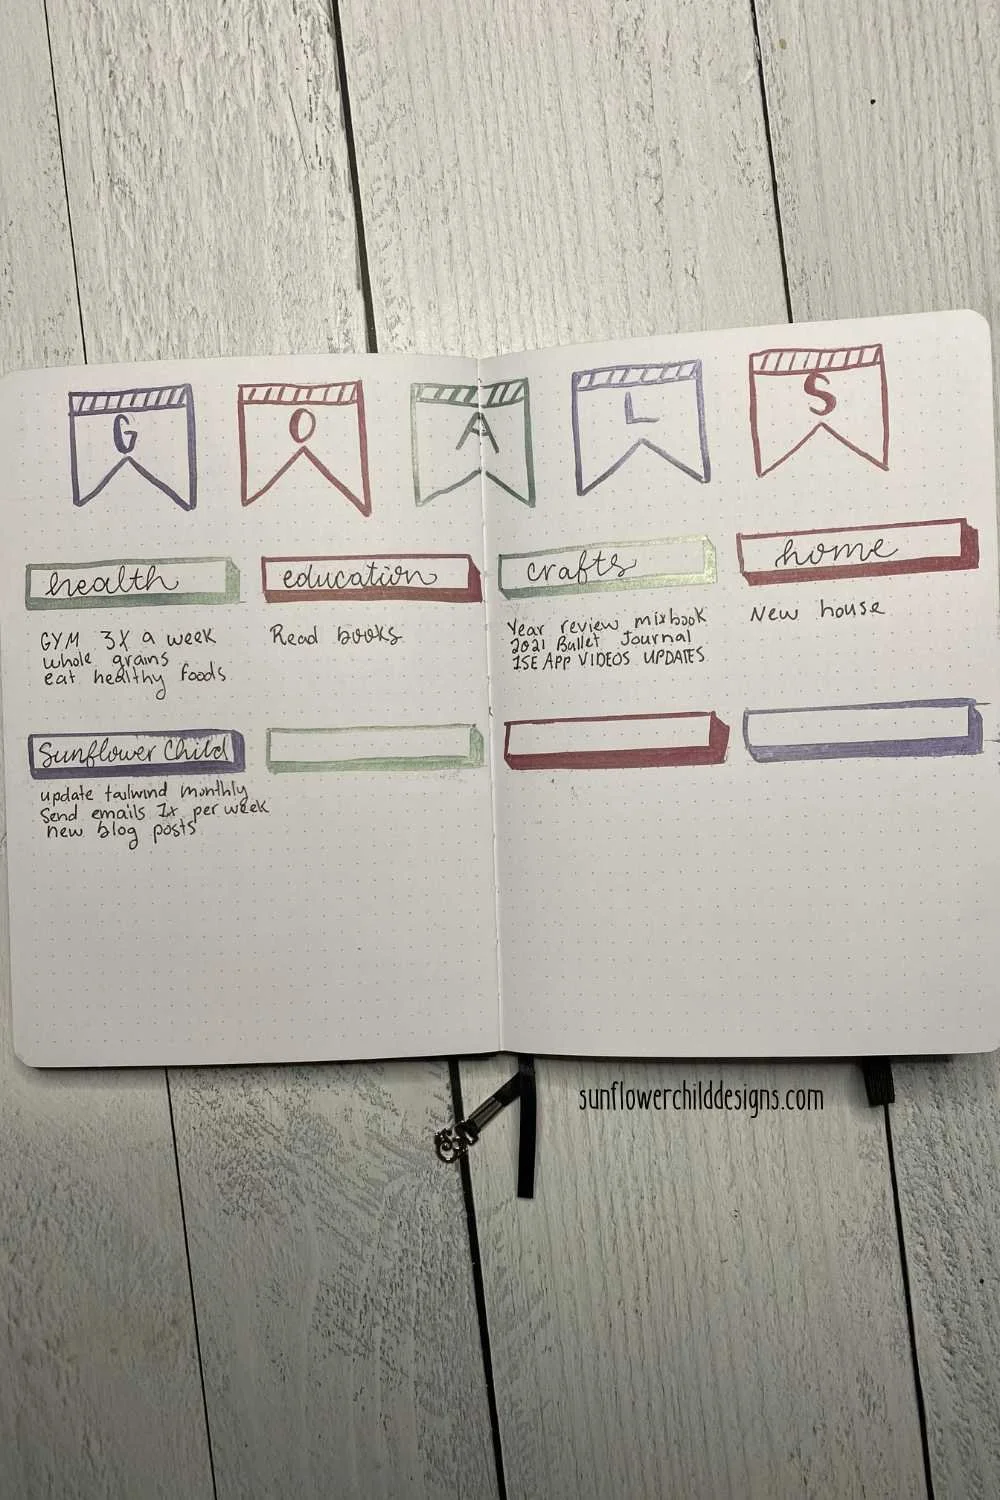 GOALS
health
GYM 3X a week
whole grains
eat healthy foods
education
Read books
crafts
Year review mixbook
2021 Bullet Journal
ISE APP VIDEOS UPDATES
home
New house
Sunflower Child
update tailwind monthly
Send emails 1x per week
new blog posts
sunflowerchilddesigns.com